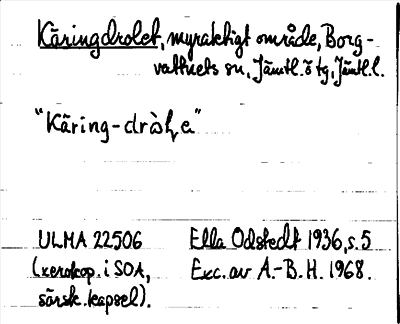 Käringdrolet, myraktigt område, Borg-
vattnets sn, Jämtl. ö tg, Jämtl. l.
"Käring-
ULMA 22506 Ella Odstedt 1936, s. 5
(xerokop. i SOA, Exc. av A.-B. H. 1968.
särsk. kapsel).